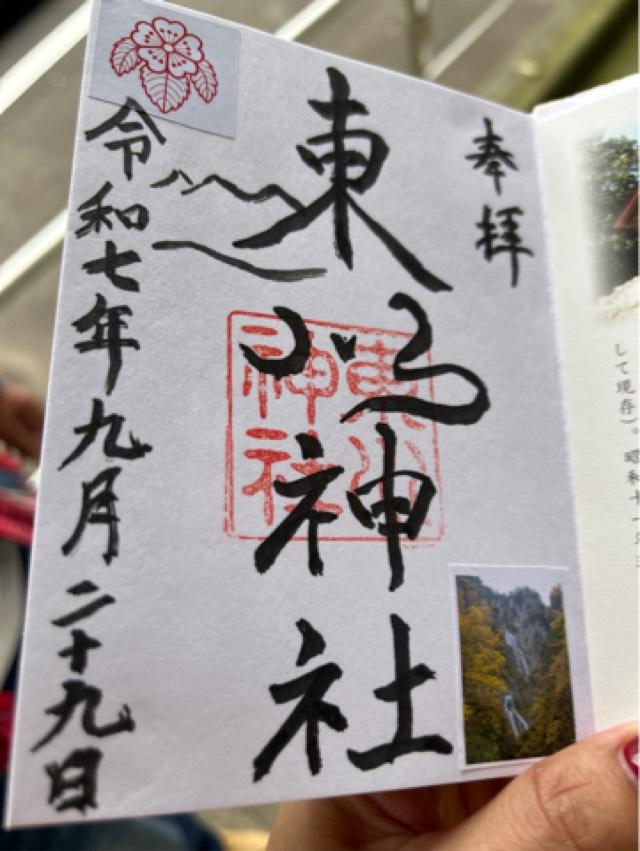 奉拝
東川神社
東川神社
令和七年九月二十九日
して現存)。昭和十一